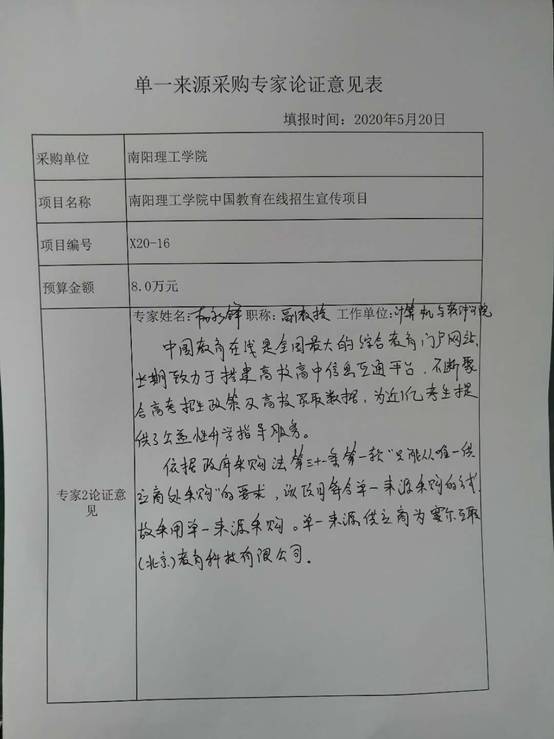 单一来源采购专家论证意见表
填报时间：2020年5月20日
采购单位 南阳理工学院
项目名称 南阳理工学院中国教育在线招生宣传项目
项目编号 X20-16
预算金额 8.0万元
专家姓名：杨 锋 职称：副教授 工作单位：计算机与软件学院
中国教育在线是全国最大的综合教育门户网站，
长期致力于搭建高校高中信息互通平台，不断聚
合高考招生政策及高校录取数据，为近1亿考生提
供了公益性升学指导服务。
依据政府采购法第三十一条第一款“只能从唯一供
应商处采购”的要求，该项目符合单一来源采购的
故采用单一来源采购。单一来源供应商为赛尔互联
（北京）教育科技有限公司。
专家2论证意
见